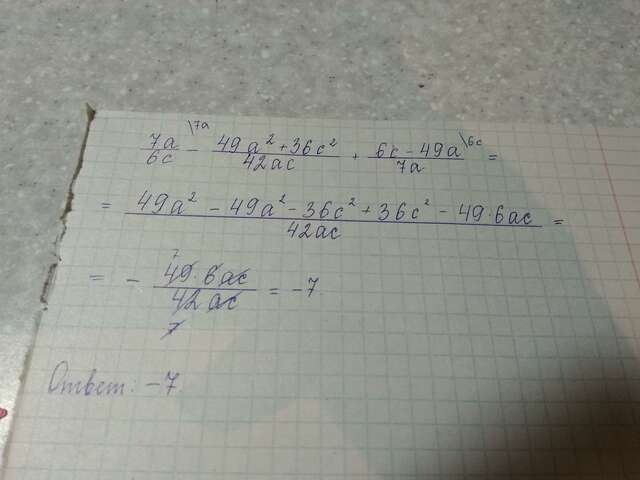 7a/6c \7a − 49a² + 36c²/42ac + 6c − 49a/7a \6c =
= 49a² − 49a² − 36c² + 36c² − 49·6ac/42ac =
= − 49·6ac/42ac = −7
7
7
Ответ: −7